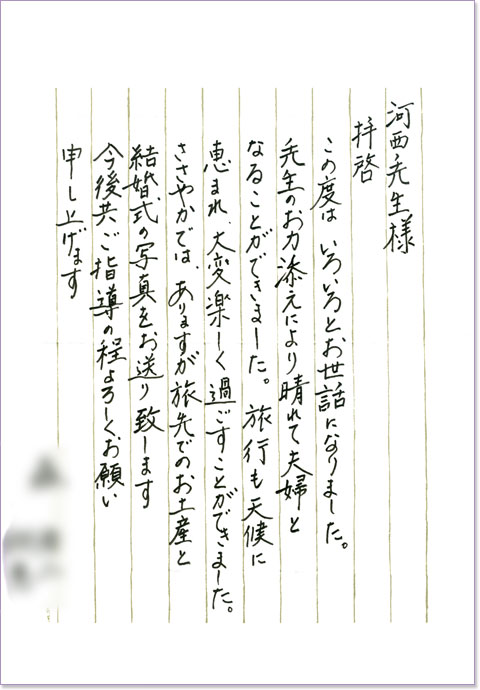 河西先生様
拝啓
この度は いろいろとお世話になりました。
先生のお力添えにより晴れて夫婦と
なることができました。旅行も天候に
恵まれ、大変楽しく過ごすことができました。
ささやかでは、ありますが旅先でのお土産と
結婚式の写真をお送り致します
今後共ご指導の程よろしくお願い
申し上げます